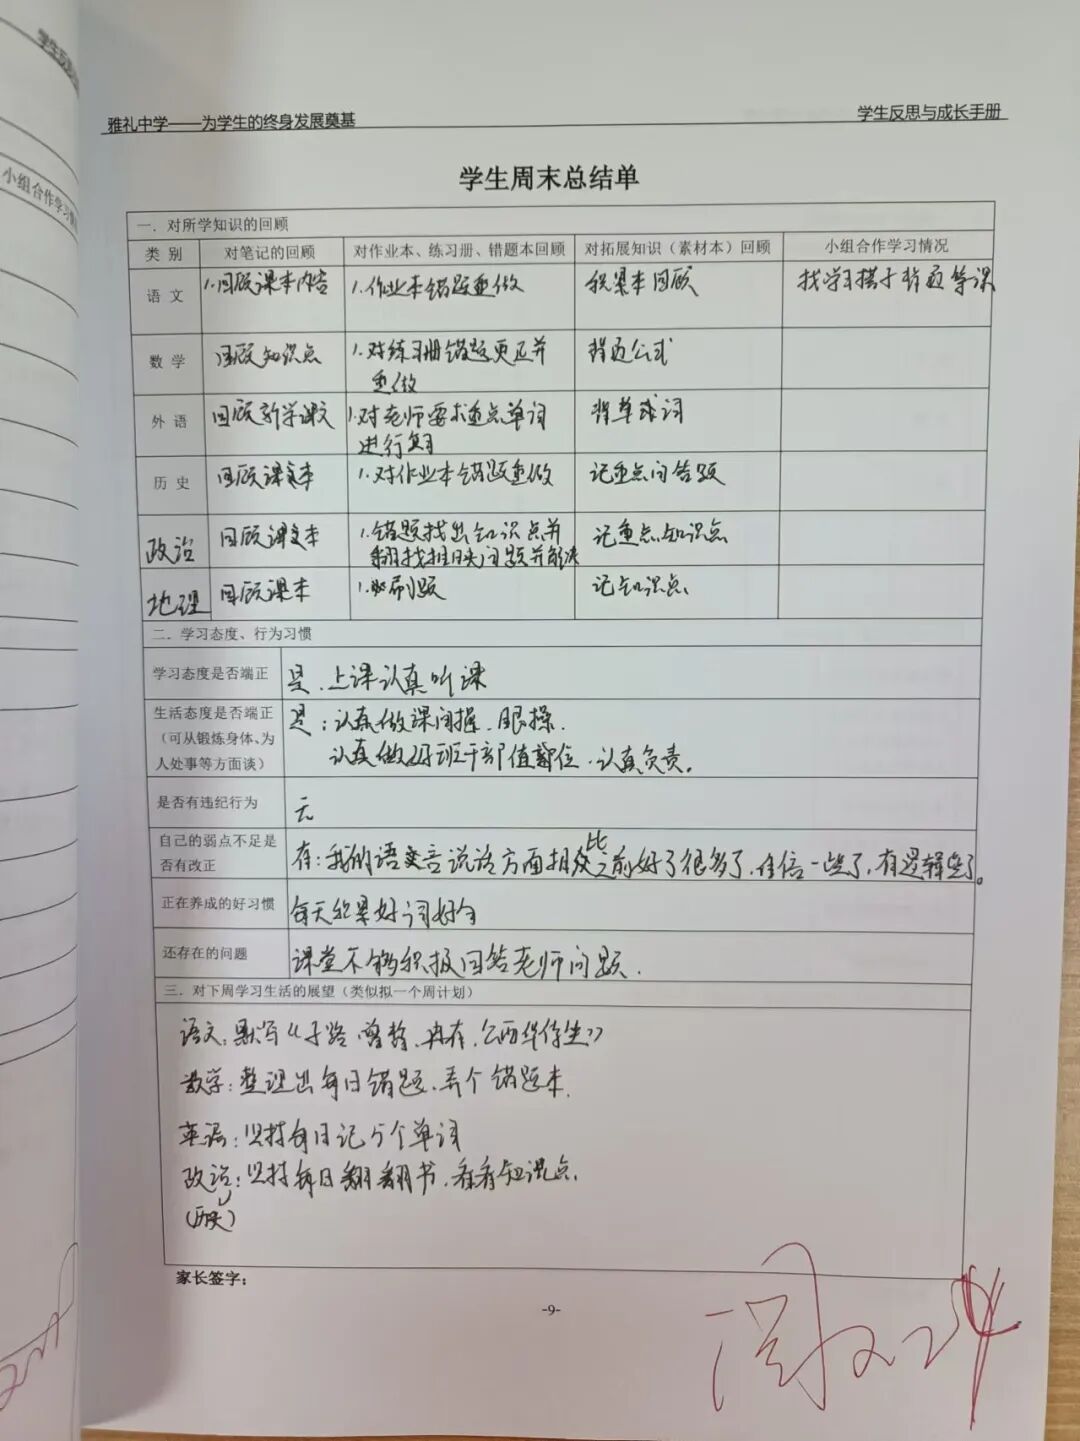 学生反思
小组合作学习情
雅礼中学——为学生的终身发展奠基
学生反思与成长手册
学生周末总结单
一．对所学知识的回顾
类 别 对笔记的回顾 对作业本、练习册、错题本回顾 对拓展知识（素材本）回顾 小组合作学习情况
语 文 1.回顾课本内容 1.作业本错题重做 积累本回顾 找学习搭子背迈等课
数 学 回顾知识点 1.对练习册错题更正并
重做 背迈公式
外 语 回顾新学课文 1.对老师要求重点单词
进行复习 背单词
历 史 回顾课文本 1.对作业本错题重做 记重点问答题
政治 回顾课文本 1.错题找出知识点并
翻找相关问题并解决 记重点知识点
地理 回顾课本 1.必刷题 记知识点
二．学习态度、行为习惯
学习态度是否端正 是、上课认真听课
生活态度是否端正
（可从锻炼身体、为
人处事等方面谈） 是：认真做课间操、眼操.
认真做好班干部值位、认真负责。
是否有违纪行为 无
自己的弱点不足是
否有改正 有：我的语言说话方面相比之前好了很多了、自信一些了，有逻辑些了。
正在养成的好习惯 每天积累好词好句
还存在的问题 课堂不够积极回答老师问题.
三．对下周学习生活的展望（类似拟一个周计划）
语文：默写《子路、曾皙、冉有、公西华侍坐》
数学：整理出每日错题、弄个错题本.
英语：坚持每日记5个单词
政治：坚持每日翻翻书、看看知识点.
(历史)
家长签字：
-9-